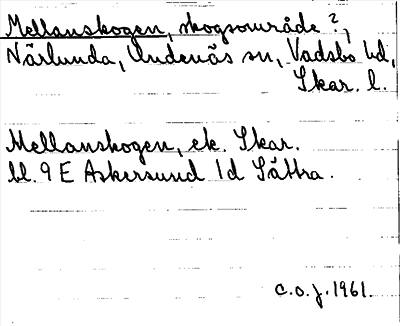 Mellanskogen, skogsområde ?,
Närlunda, Undenäs sn, Vadsbo hd,
Skar. l.
Mellanskogen, ek. Skar.
bl. 9 E Askersund 1d Sättra.
c.o.j. 1961.